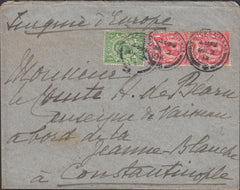 Turquie d'Europe
Monsieur
le Comte H. de Bearn
enseigne de Vaisseau
a bord de la
Jeanne-Blanche
à Constantinople